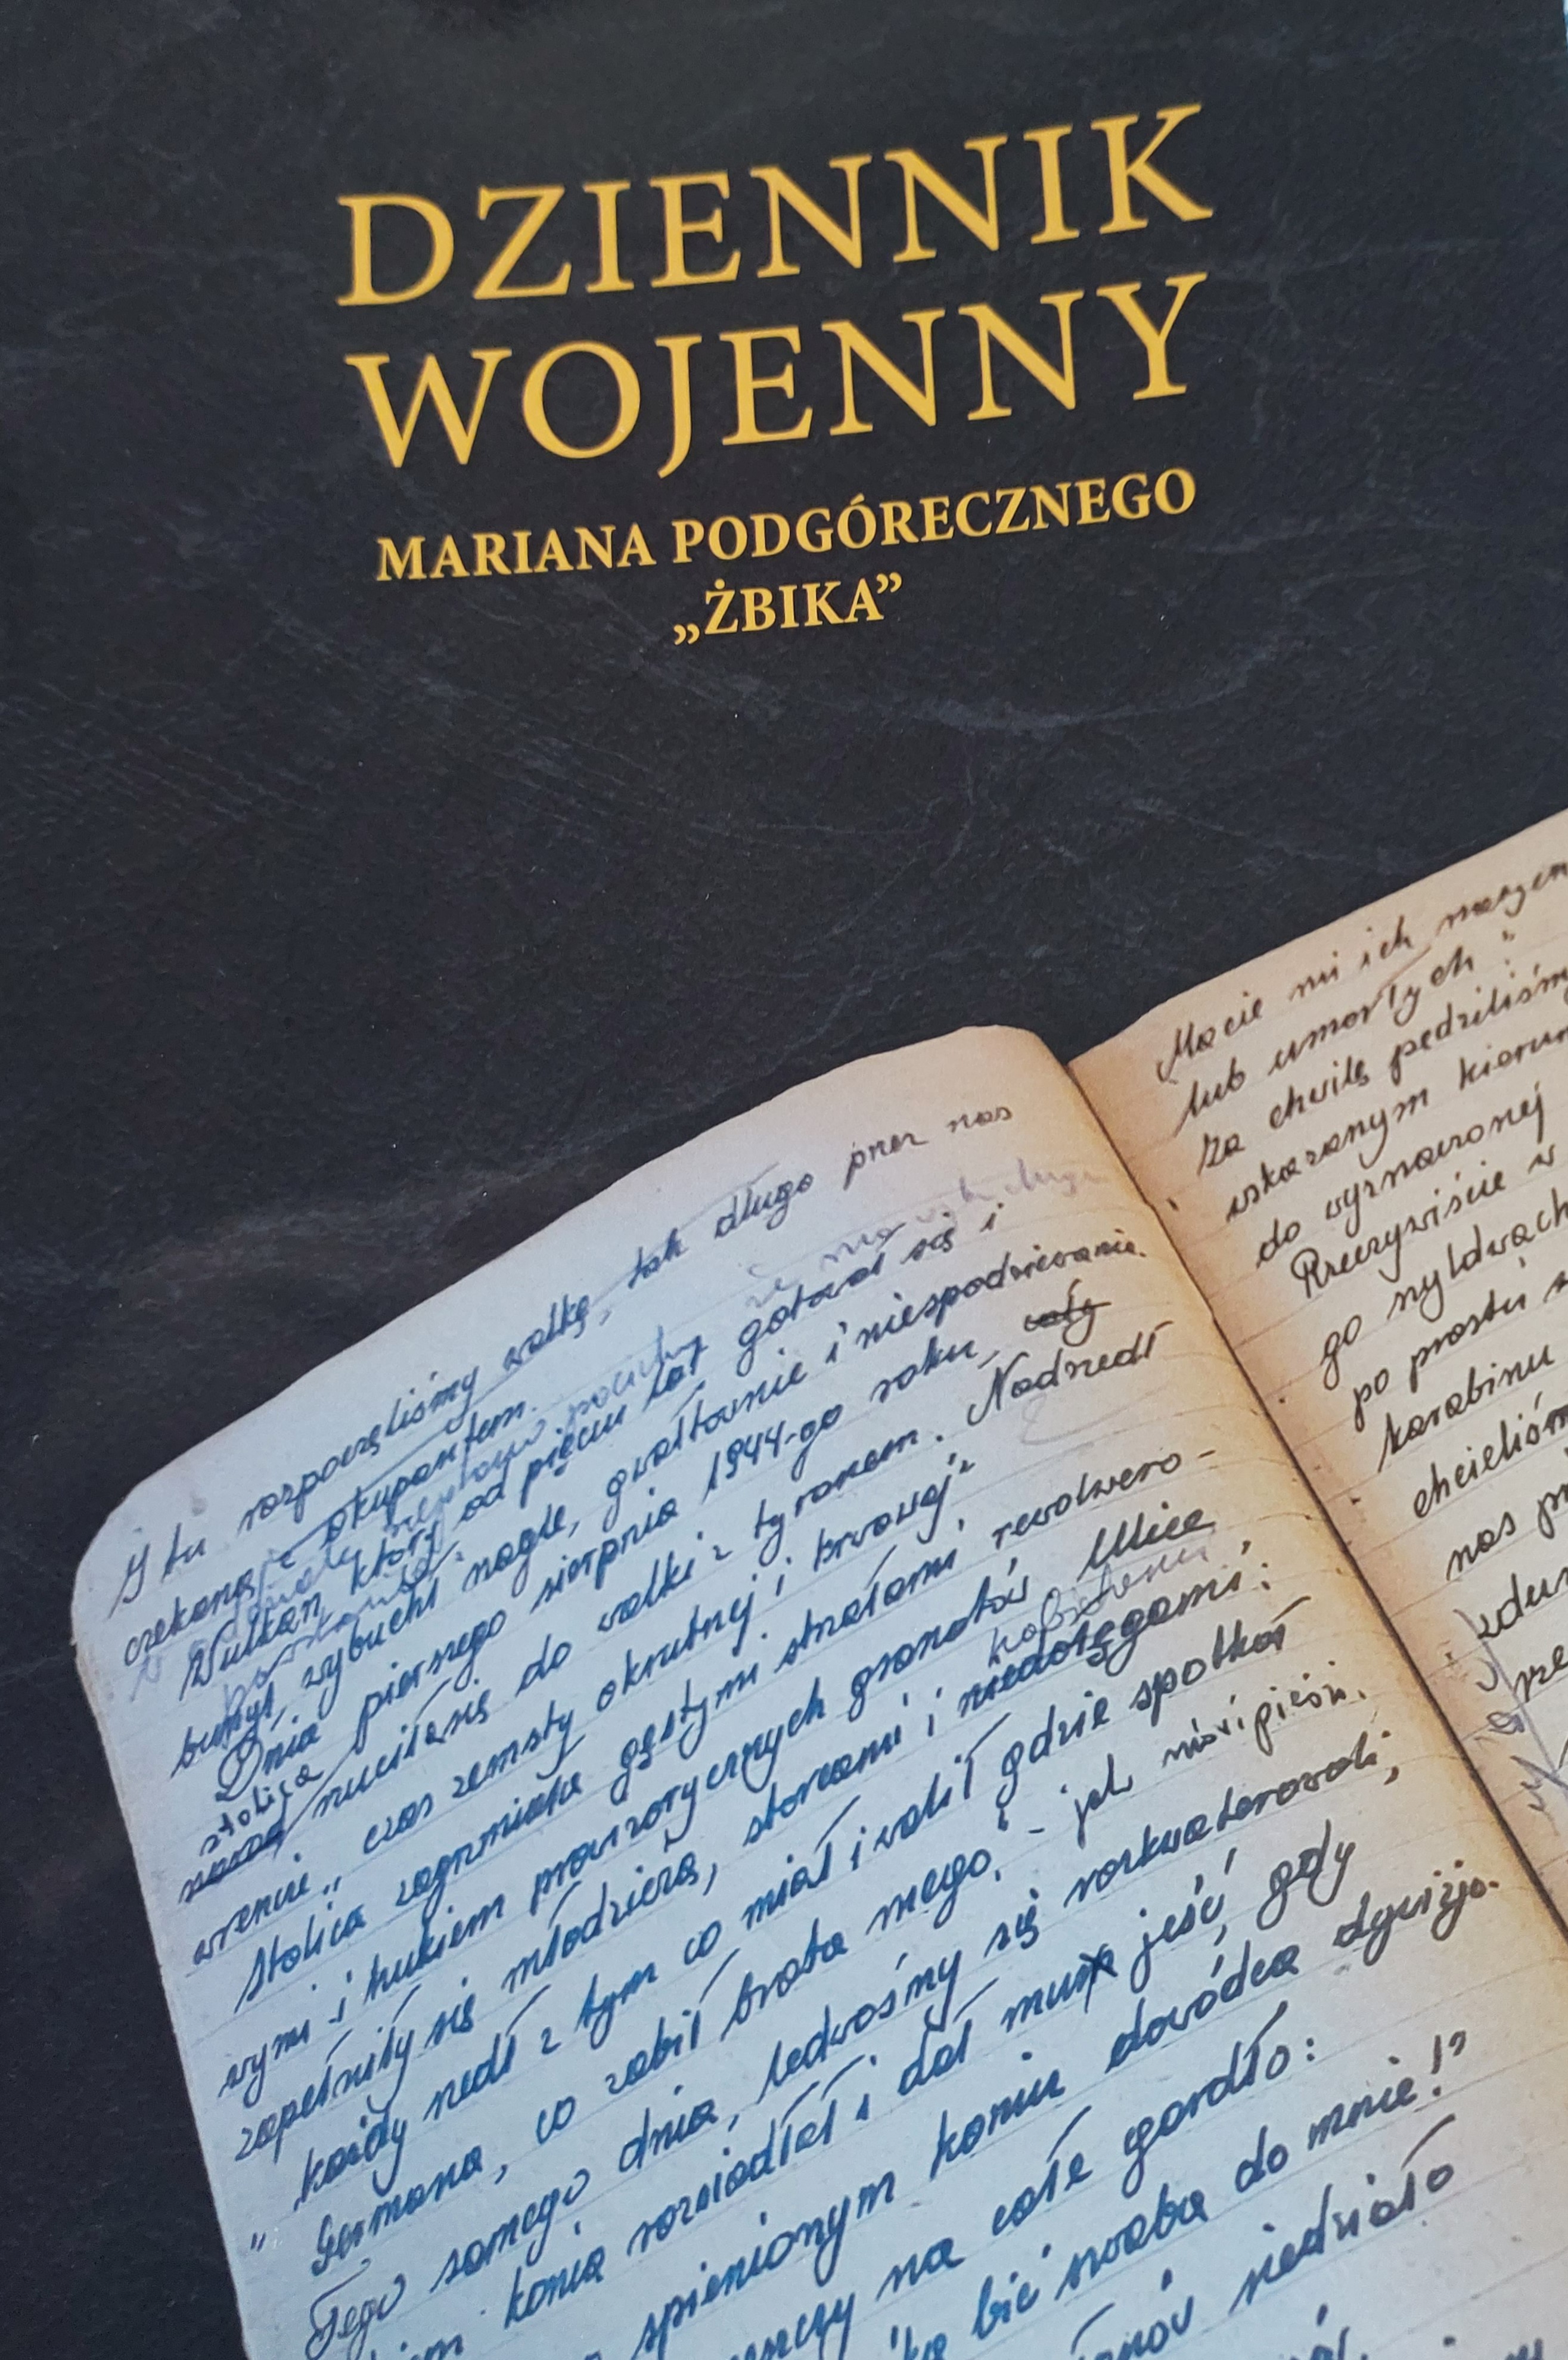 DZIENNIK
WOJENNY
MARIANA PODGÓRECZNEGO
„ŻBIKA”
I tu rozpoczęliśmy walkę, tak długo przez nas
czekaną z okupantem.
Wulkan, który od pięciu lat gotował się i
burzył, wybuchł nagle, gwałtownie i niespodziewanie.
Dnia pierwszego sierpnia 1944-go roku, cały
stolica
nasza rzuciła się do walki z tyranem. Nadszedł
wreszcie „czas zemsty okrutnej i krwawej”
Stolica zagrzmiała gęstymi strzałami rewolwero-
wymi i hukiem prowizorycznych granatów Ulice
kobietami
zapełniły się młodzieżą, starcami i niedołęgami:
„każdy szedł z tym co miał i walił gdzie spotkał
Germana, co zabił brata mego.” - jak mówi pieśń.
Tego samego dnia, ledwośmy się rozkwaterowali,
konia rozsiodłał i dał mu jeść, gdy
spienionym koniu dowódca dywizjo.
na całe gardło:
bić szwaba do mnie!”
siedziało
Macie mi ich
lub umarłych”
Za chwilę pędziliśmy
wskazanym
do wyznaczonej
Rzeczywiście w
go
po prostu
karabinu
nas